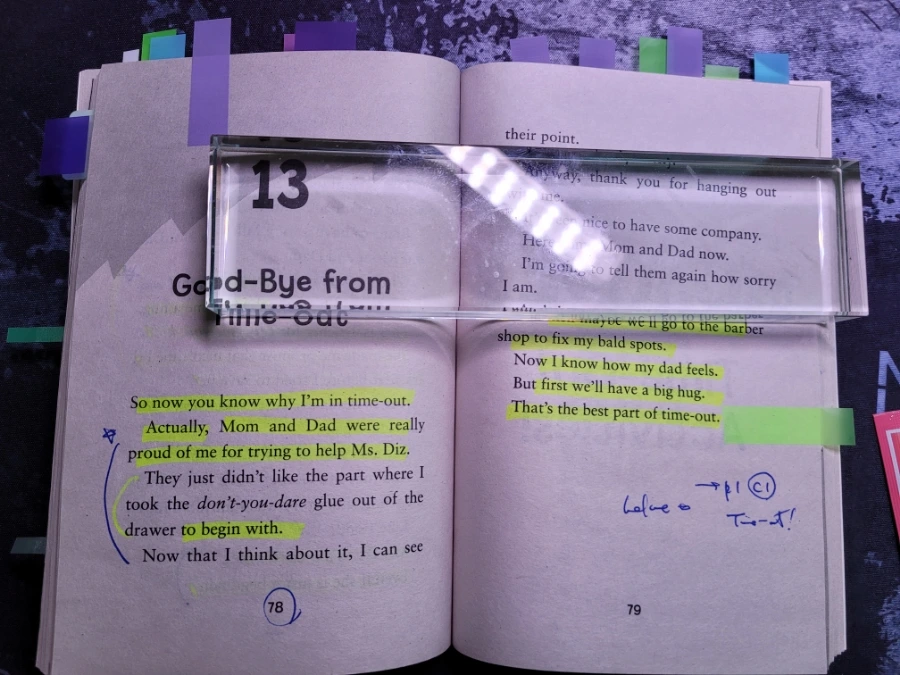 13
Good-Bye from
Time-Out
So now you know why I'm in time-out.
Actually, Mom and Dad were really
proud of me for trying to help Ms. Diz.
They just didn't like the part where I
took the don't-you-dare glue out of the
drawer to begin with.
Now that I think about it, I can see
78
their point.
Anyway, thank you for hanging out
me.
nice to have some company.
Mom and Dad now.
I'm going to tell them again how sorry
I am.
maybe we'll go to the barber
shop to fix my bald spots.
Now I know how my dad feels.
But first we'll have a big hug.
That's the best part of time-out.
→ p1 C1
Time-out!
79